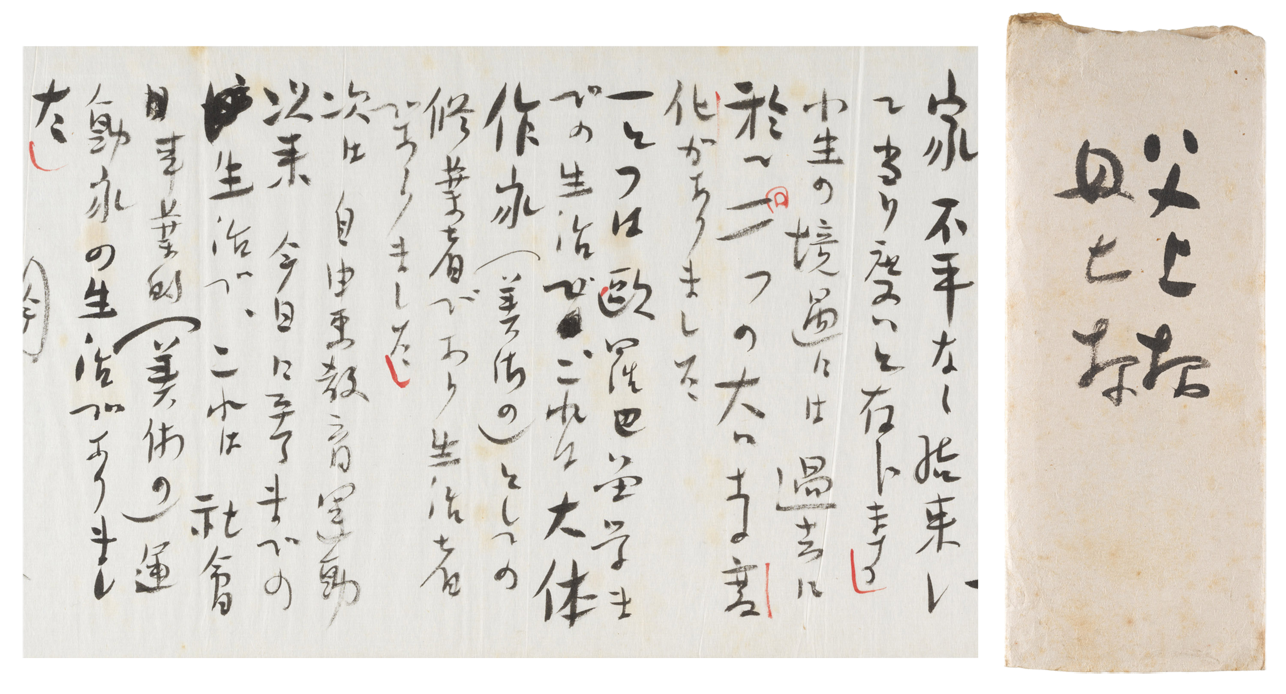 父上様
母上様
家不幸なし
て当り度いと存じます
小生の境遇には 過去に
於て二つの大いなる変
回
化がありました
一とつは歐羅巴留学ま
での生活で これは大体
作家(美術の)としての
修業者であり生活者
でありました
次は 自由画教育運動
以来 今日に至るまでの
生活で、これは 社會
事業的(美術の)運
動家の生活でありまし
た